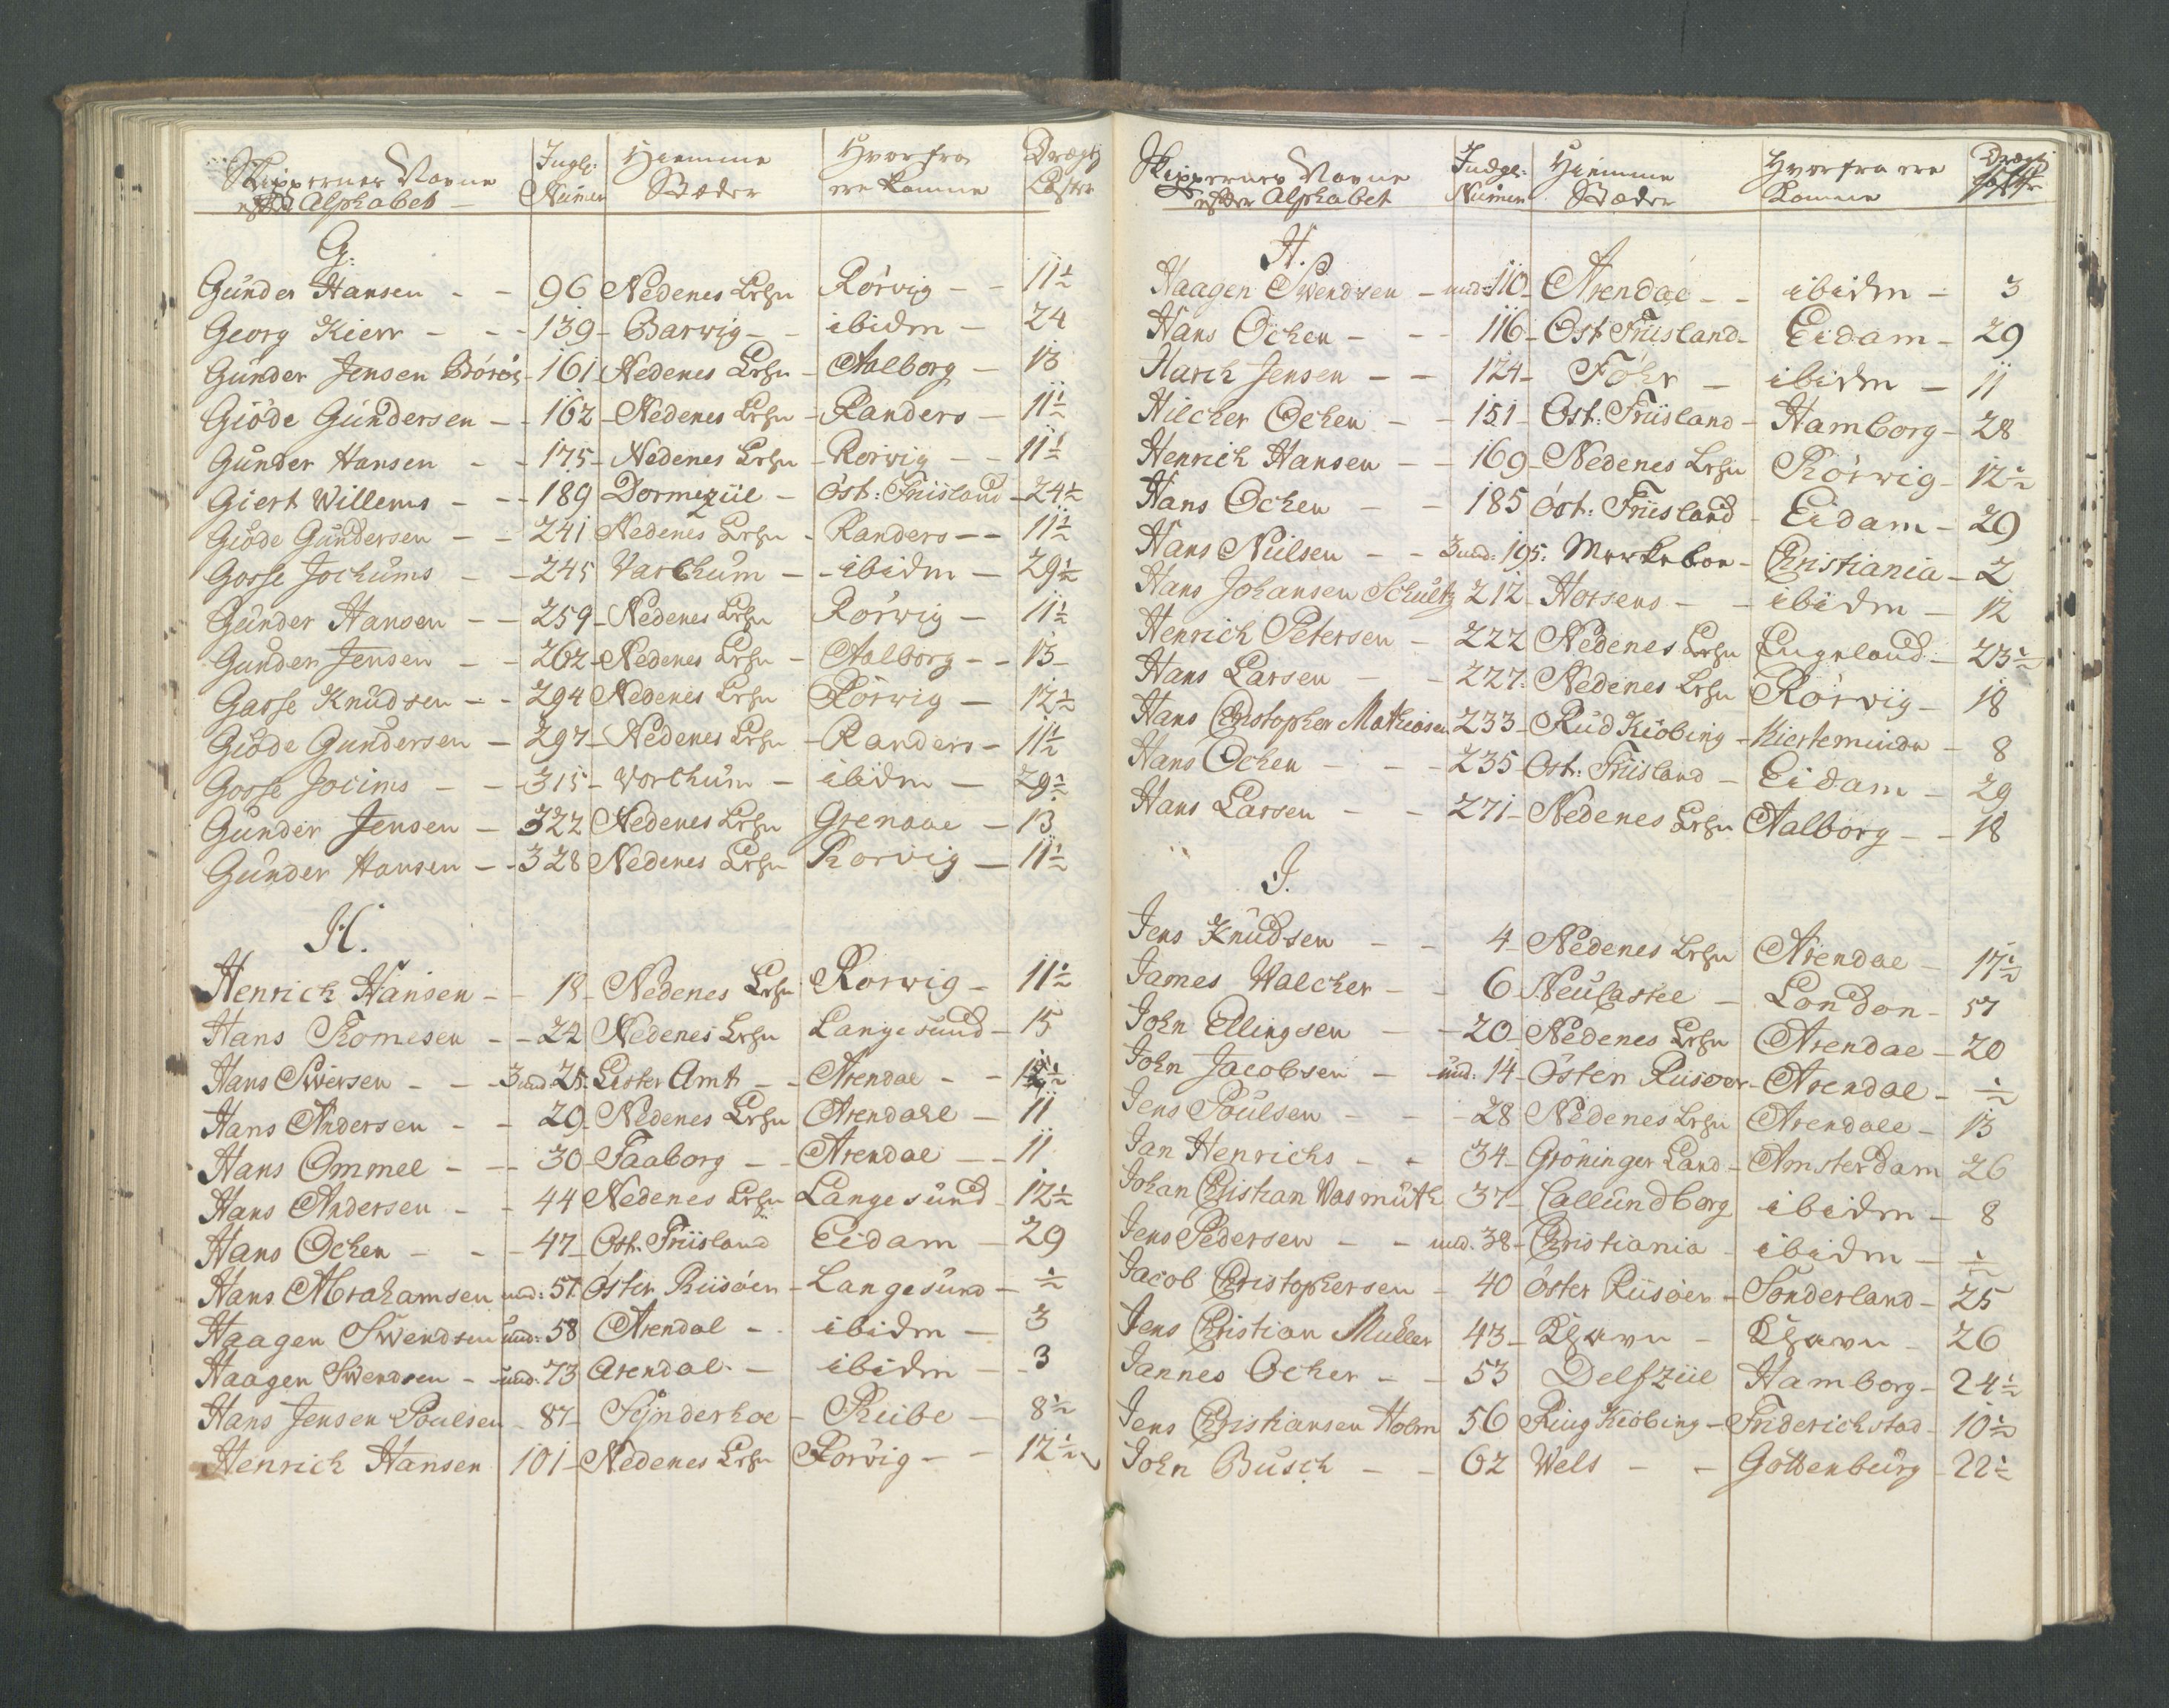 Skippernes Navne | Jngl: | Hiemme | Hvorfra | Drægt:
efter Alphabet | Numer | Stæder | ere komne | Læster
G:
Gunder Hansen - - 96 Nedenes Lehn Rörvig - - 11½
Georg Kierr - - - 139 - Barwig - - ibidm - 24
Gunder Jensen - 161 - Nedenes Lehn - Aalborg - 13
Giöde Gundersen - - 162 - Nedenes Lehn - Randers - 11½
Gunder Hansen - - 175 - Nedenes Lehn - Rörvig - - 11½
Giert Willems - - - 189 Dormeziil - Öst: Friisland - 24½
Giöde Gundersen - - 241 Nedenes Lehn - Randers - - 11½
Gosse Jochums - - 245 Varchum - - ibidm - 29½
Gunder Hansen - - 259 - Nedenes Lehn Rörwig - 11½
Gunder Jensen - - 262 - Nedenes Lehn - Aalborg - - 13 -
Gasse Knudsen - - 294 Nedenes Lehn Rörwig - 12½
Giöde Gundersen - 297 - Nedenes Lehn - Randers - 11½
Gosse Jocims - - 315 - Vorchum - ibidm - 29½
Gunder Jensen - 322 Nedenes Lehn Grenaae - 13
Gunder Hansen - - 328 Nedenes Lehn Rorvig - 11½
H.
Henrich Hansen - - 18 - Nedenes Lehn Rorwig - 11½
Hans Tomesen - - 22 Nedenes Lehn Langesund - 15
Hans Swersen - - - 3 und 25. Lister Amt - - Arendal - -
Hans Andersen - - 29 - Nedenes Lehn Arendahl - 11
Hans Ommel - - - 30 - Faaborg - - Arendal - - 11
Hans Andersen - - 44 Nedenes Lehn Langesund - 12½
Hans Ochen - - - 47 - Öst. Friisland Eidam - 29
Hans Abrahamsen und: 57. Öster Riisöer - Langesund - ½
Haagen Swendsen und: 58 Arendal - - ibidm - 3
Haagen Swendsen - und: 73 Arendal - - ibidm - - 3
Hans Jensen Poulsen - 87 - Synderhoe - Riibe - 8½
Henrich Hansen 101 - Nedenes Lehn Rorvig - - 12½
Skippernes Navne | Indgl: | Hiemme | Hvorfra ere | Drægt:
efter Alphabet | Numer | Stæder | Komne
H.
Haagen Swendsen - und: 110 - Arendal - - ibidm - 3
Hans Ochen - - - 116 - Ost Friisland - Eidam - 29
Hurch Jensen - - 124 - Föhr - ibidm - 11
Hilcher Ochen - - 151 - Ost: Friisland - Hamborg - 28
Henrich Hansen - - 169 - Nedenes Lehn Rörvig - 12½
Hans Ochen - - 185 Öst: Friisland - Eidam - 29
Hans Nielsen - - 3 und: 195. Merkeboe - Christiania - 2
Hans Johansen Schultz 212 - Horsens - - ibidm - 12
Henrich Petersen - 222 Nedenes Lehn Engeland - 23½
Hans Larsen - - 227. Nedenes Lehn Rörviig - 18
Hans Christopher Mathiasen 233 - Rudkiöbing - Kierteminde - 8
Hans Ochen - - - 235 Ost: Friisland - Eidam - 29
Hans Larsen - - 271 - Nedenes Lehn Aalborg - - 18
J.
Jens Knudsen - - 4 - Nedenes Lehn Arendal - 17½
James Walcher - - 6 Neucastel - London - 57
John Ellingsen - - 20 - Nedenes Lehn Arendal - 20
John Jacobsen - und. 14 - Östen Riisoer - Arendal - ½
Jens Poulsen - - - 28 Nedenes Lehn Arendall - 13
Jan Henrichs - - 34 - Gröninger Land - Amsterdam 26
Johan Christian Wasmuth 37 - Callundborg ibidm - 8
Jens Pedersen - - und. 38 - Christiania - ibidm - ½
Jacob Christophersen - 40 Öster Riisöer - Sonderland - 25
Jens Christian Muller 43 - Khavn - Khavn - 26
Jannes Ocher - - 53 Delfziil Hamborg - 24½
Jens Christiansen Holm 56 Ringkiöbing - Friderichstad - 10½
John Busch - - 62 Wels - - Gottenburg - 22½